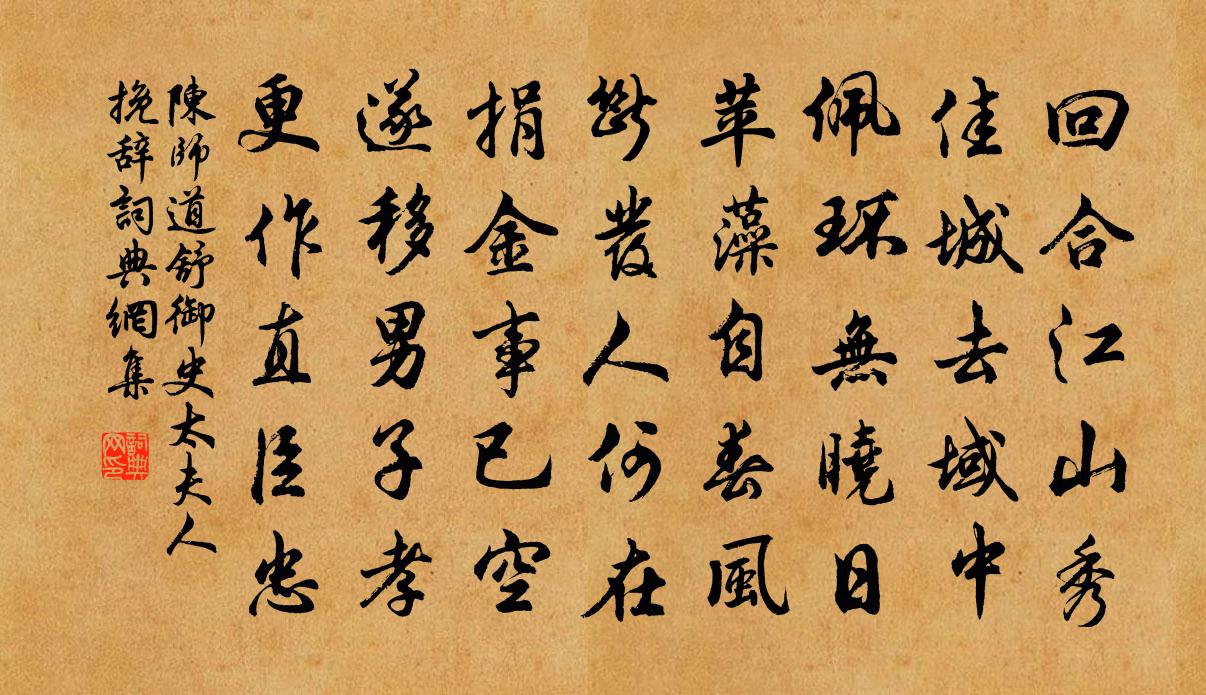 回合江山秀
佳城去域中
佩环無曉日
苹藻自春風
斷發人何在
捐金事已空
遂移男子孝
更作直臣忠
陳師道舒御史太夫人
挽辞詞典網集
詞典网印